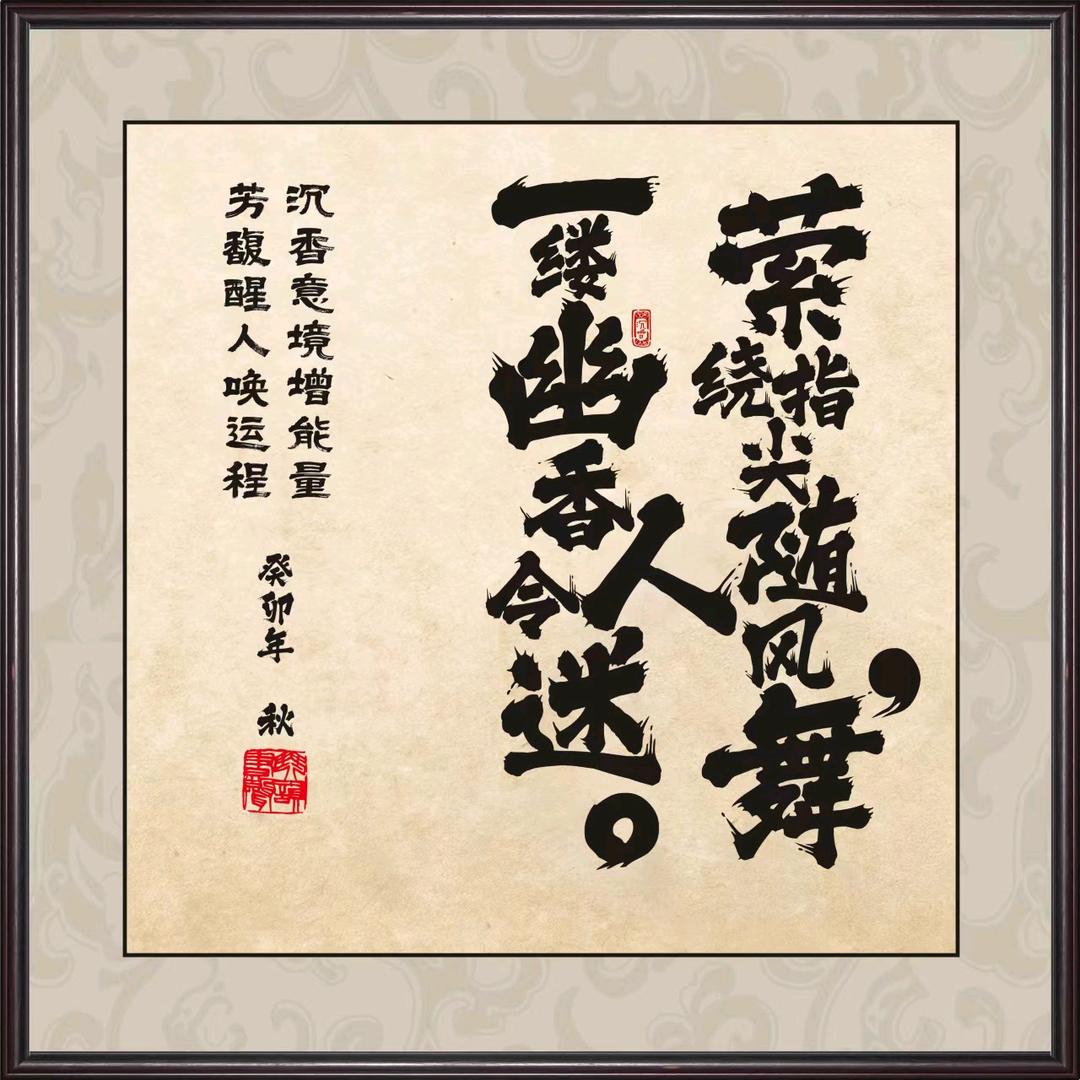 萦绕指尖随风舞，
一缕幽香令人迷。
沉香意境增能量
芳馥醒人唤运程
癸卯年 秋